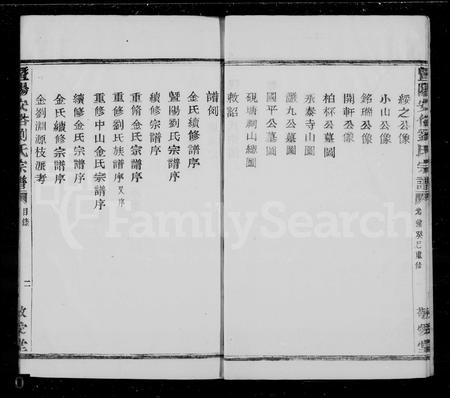 暨陽安俗劉氏宗譜
光緒癸巳重修
敬愛堂
綏之公像
小山公像
銘瑞公像
開軒公像
柏杯公墓圖
永泰寺山圖
讓九公墓圖
國平公墓圖
硯塘祠山總圖
敕詔
譜例
金氏續修譜序
暨陽劉氏宗譜序
續修宗譜序
重修金氏宗譜序
重修劉氏族譜序 又序
重修中山金氏宗譜序
續修金氏宗譜序
金氏續修宗譜序
金劉淵源枝派考
暨陽安俗劉氏宗譜
目錄
二
敬愛堂
FamilySearch